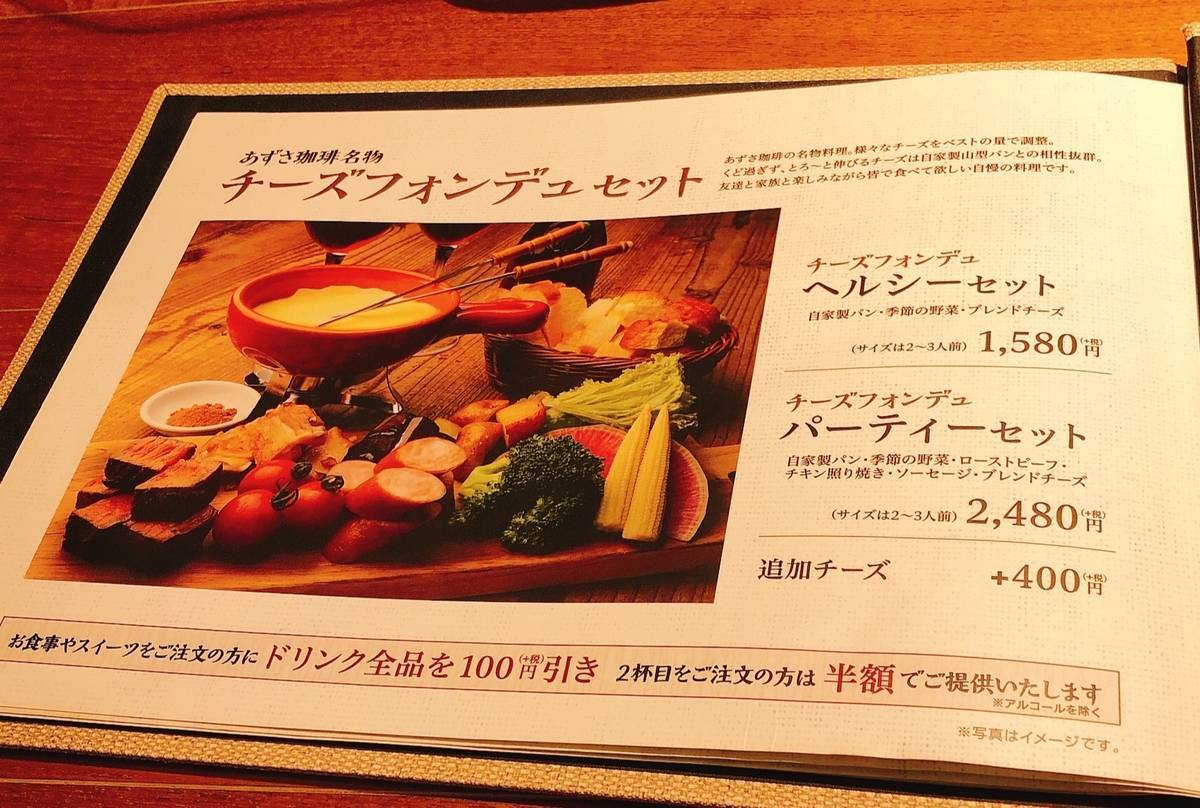 あずさ珈琲名物
チーズフォンデュセット
あずさ珈琲の名物料理。様々なチーズをベストの量で調整。
くど過ぎず、とろ～と伸びるチーズは自家製山型パンとの相性抜群。
友達と家族と楽しみながら皆で食べて欲しい自慢の料理です。
チーズフォンデュ
ヘルシーセット
自家製パン・季節の野菜・ブレンドチーズ
(サイズは2～3人前) 1,580円(+税)
チーズフォンデュ
パーティーセット
自家製パン・季節の野菜・ローストビーフ・
チキン照り焼き・ソーセージ・ブレンドチーズ
(サイズは2～3人前) 2,480円(+税)
追加チーズ +400円(+税)
お食事やスイーツをご注文の方に ドリンク全品を100円(+税)引き 2杯目をご注文の方は 半額でご提供いたします
※アルコールを除く
※写真はイメージです。